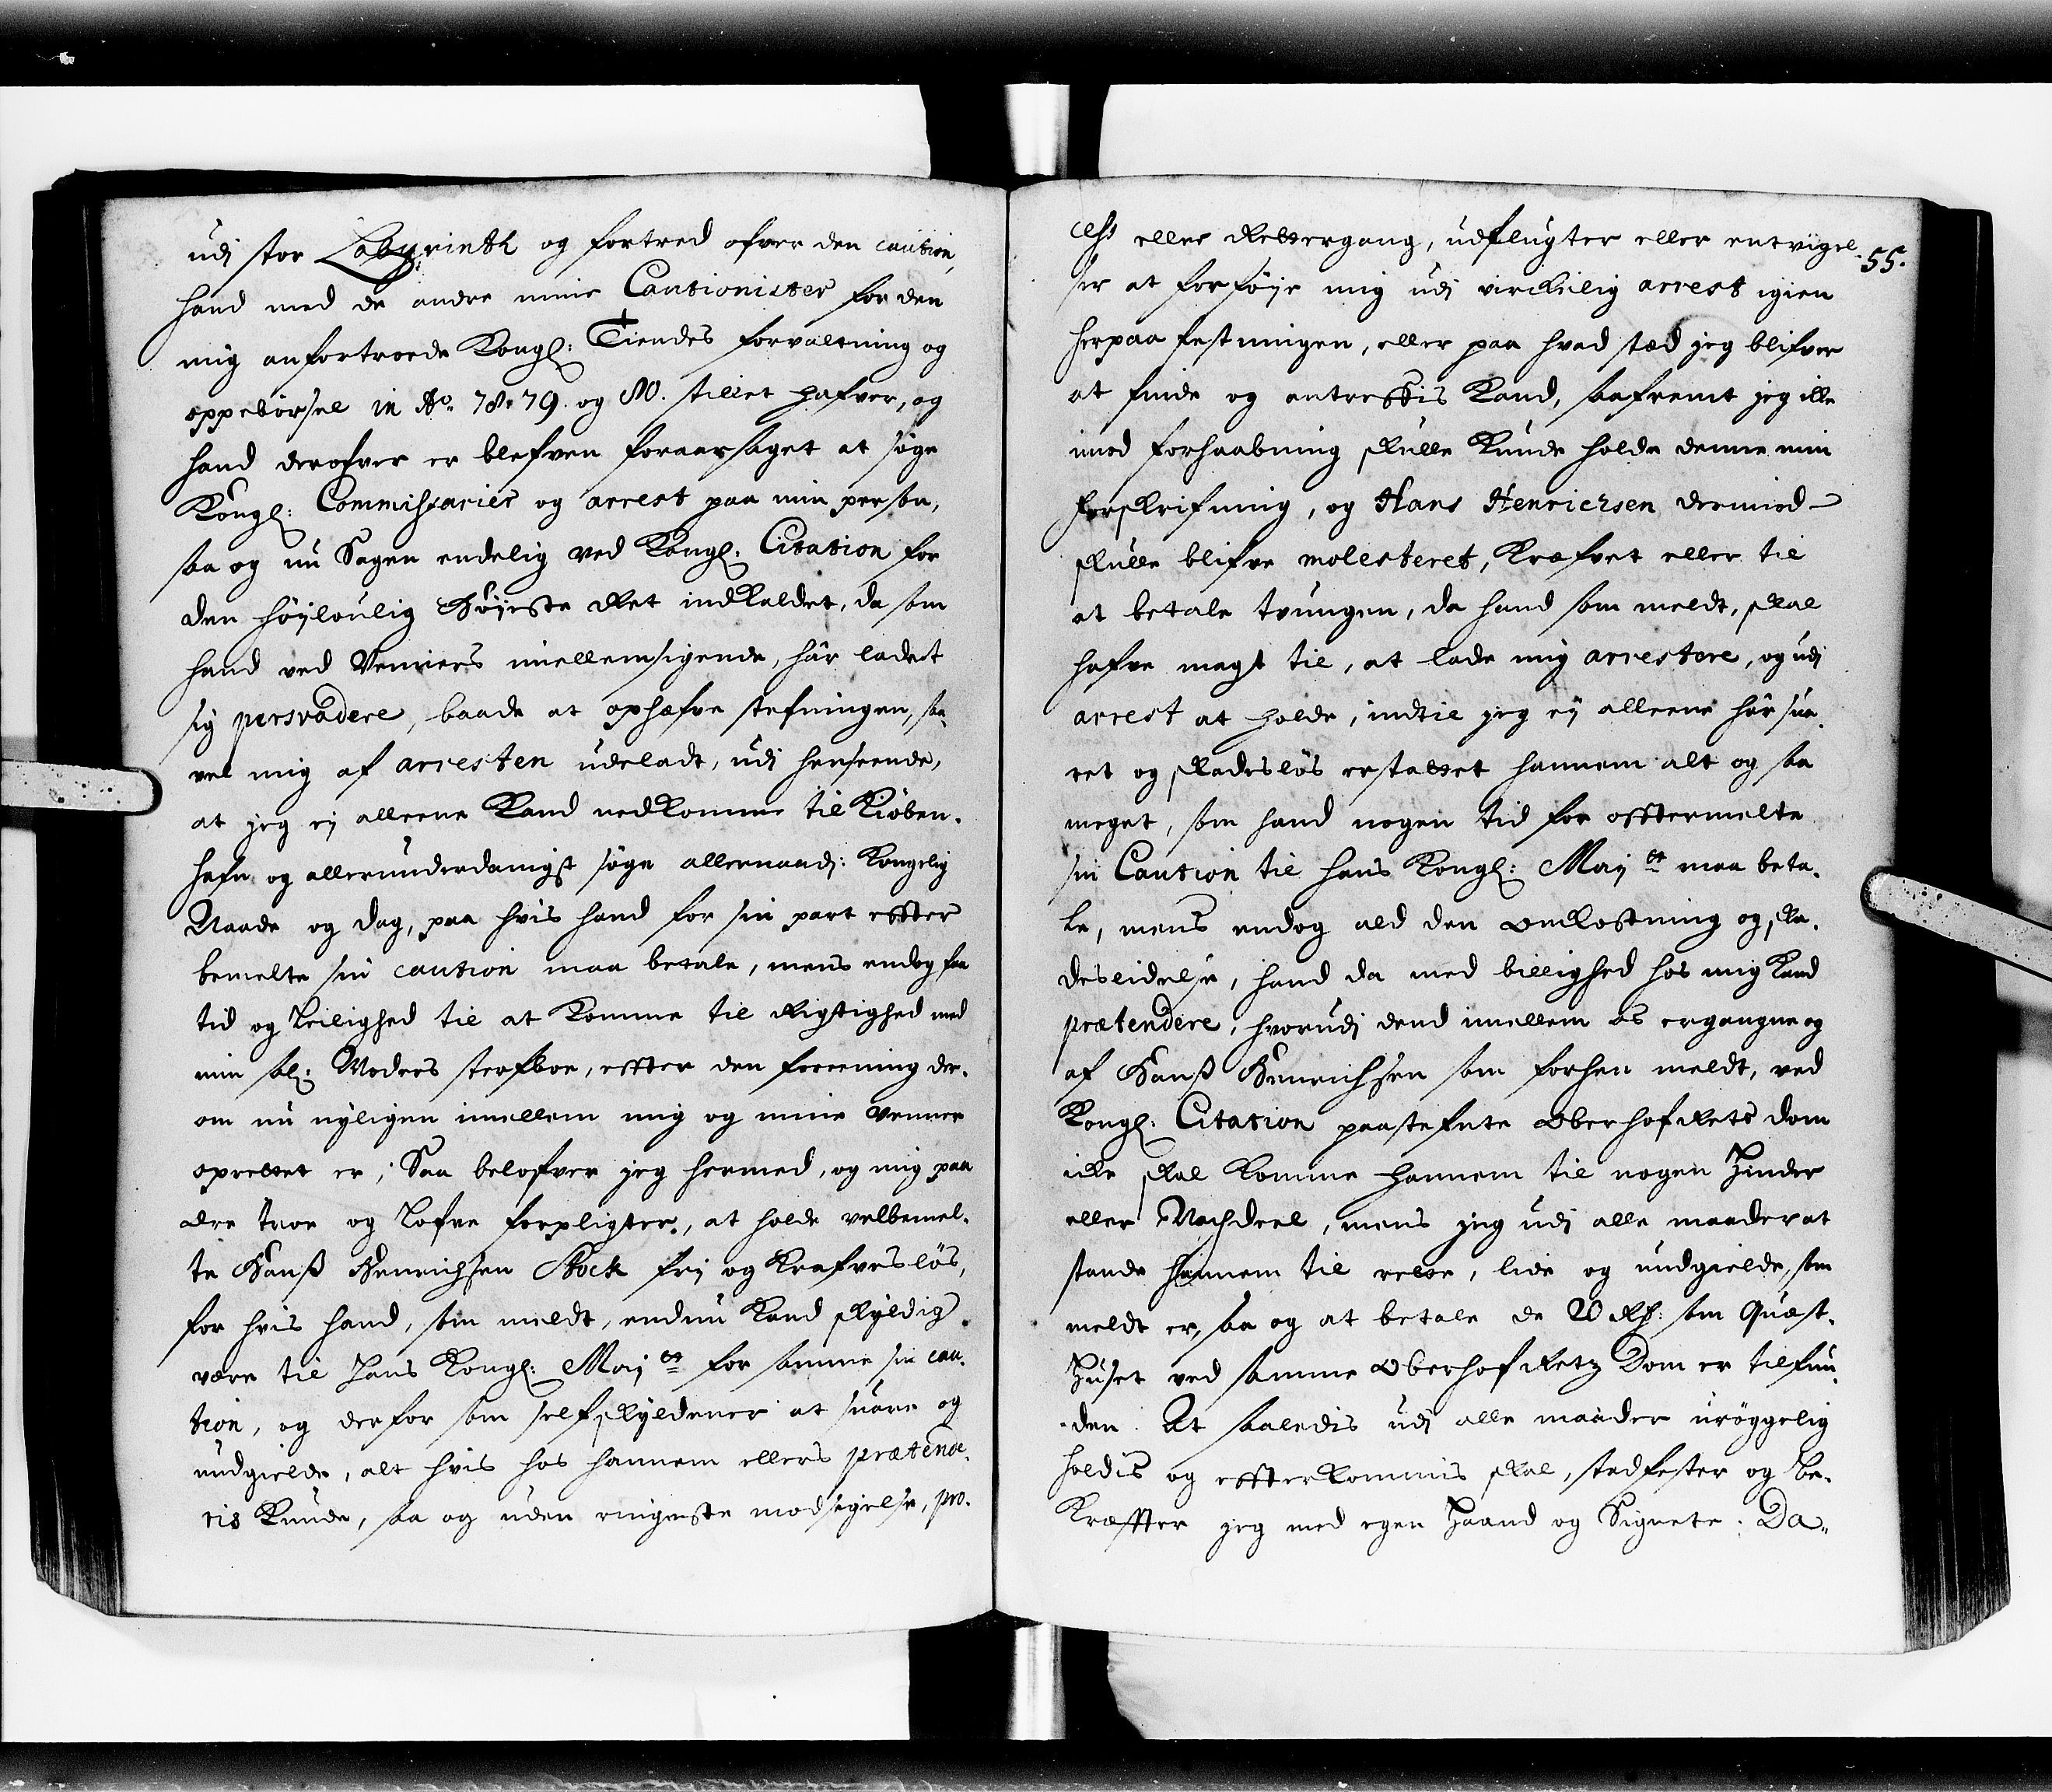 udj stor Labyrinth og fortred ofver den caution,
hand med de andre mine Cautionister for den
mig anfortroede Kongl: Tiendes forvaltning og
oppebörsel in Ao. 78. 79. og 80. stillet hafver, og
hand derofver er blefven foraarsaget at söge
Kongl: Commissarier og arrest paa min person,
saa og nu Sagen endelig ved Kongl. Citation for
den höylovlig Höyeste Ret indkaldet, da som
hand ved Venners imellemsigende, hâr ladet
sig persvadere, baade at ophæfve stefningen, saa
vel mig af arresten udeladt, udj henseende,
at jeg ej alleene kand nedkomme til Kiöben-
hafn og allerunderdanigst söge allernaadj: Kongelig
Naade og dag, paa hvis hand for sin part effter
bemelte sin caution maa betale, mens endog faa
tid og Leilighed til at komme til Rigtighed med
min sal: Moders sterfboe, effter den foreening der-
om nu nyligen imellem mig og mine Venner
oprettet er; Saa belofver jeg hermed, og mig paa
ære troe og Lofve forpligter, at holde velbemel-
te Hanß Henrichsen Stock frj og krafveslös,
for hvis hand, som meldt, endnu kand skyldig
være til Hans Kongl: Maj et for samme sin cau-
tion, og derfor som selfskyldener at svare og
undgielde, alt hvis hos hannem ellers prætende-
ris kunde, saa og uden ringeste modsigelse, pro-
cess eller Rettergang, udflugter eller entvigel- 55.
ser at forföye mig udj virckelig arrest igien
herpaa festningen, eller paa hvad sted jeg blifver
at finde og antreffis kand, saafremt jeg ille
imod forhaabning skulle kunde holde denne min
forskrifning, og Hans Henricksen dermod
skulle blifve molesteret, kræfvet eller til
at betale tvungen, da hand som meldt, skal
hafve magt til, at lade mig arrestere, og udj
arrest at holde, indtil jeg ej alleene hâr sva-
ret og skadeslös erstattet hannem alt og saa
meget, som hand nogen tid for offtermelte
sin Caution til hans Kongl: Maj et maa beta-
le, mens endog ald den omkostning og ska-
deslidelse, hand da med billighed hos mig kand
prætendere, hvorudj dend imellem os ergangne og
af Hanß Henrichsen som forhen meldt, ved
Kongl. Citation paastefnte Oberhofrets dom
icke skal komme hannem til nogen Hinder
eller Nachdeel, mens jeg udj alle maader at
stande hannem til rette, lide og undgielde, som
meldt er, saa og at betale de 20 Rd: som Quæst-
Huset ved samme Oberhofretz Dom er tilfun-
den. At saaledis udj alle maader uröggelig
holdis og effterkommis skal, stadfester og be-
kræffter jeg med egen Haand og Signete. Da-